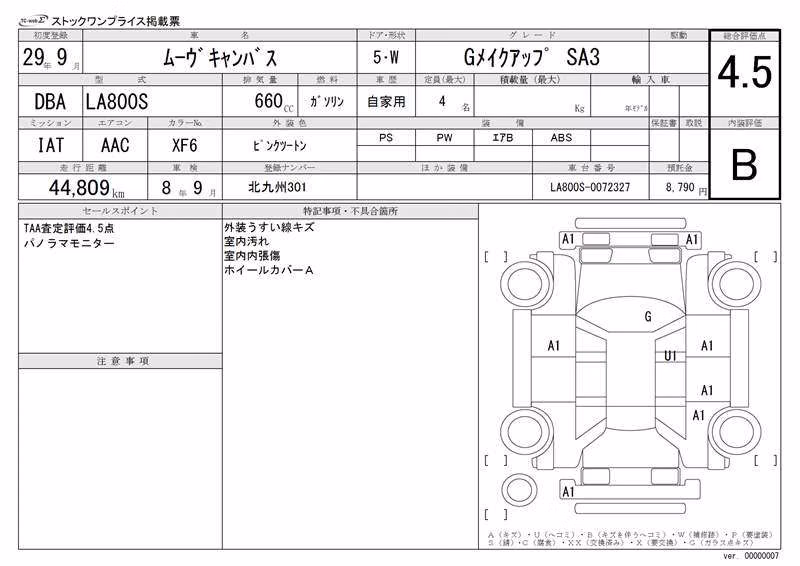 TC-webΣ ストックワンプライス掲載票
初度登録 車名 ドア・形状 グレード 駆動 総合評価点
29年 9月 ムーヴキャンバス 5・W Gメイクアップ SA3 4.5
型式 排気量 燃料 車歴 定員(最大) 積載量(最大) 輸入車
DBA LA800S 660CC ガソリン 自家用 4名 Kg 年モデル
ミッション エアコン カラーNo. 外装色 装備 保証書 取説 内装評価
IAT AAC XF6 ピンクツートン PS PW エアB ABS B
走行距離 車検 登録ナンバー ほか装備 車台番号 預託金
44,809km 8年 9月 北九州301 LA800S-0072327 8,790円
セールスポイント 特記事項・不具合箇所
TAA査定評価4.5点
パノラマモニター
外装うすい線キズ
室内汚れ
室内内張傷
ホイールカバーA
注意事項
A1 A1
[ ] [ ]
G
A1 U1 A1
A1
A1
[ ] [ ]
A1
[ ]
A(キズ)・U(ヘコミ)・B(キズを伴うヘコミ)・W(補修跡)・P(要塗装)
S(錆)・C(腐食)・XX(交換済み)・X(要交換)・G(ガラス点キズ)
ver. 00000007